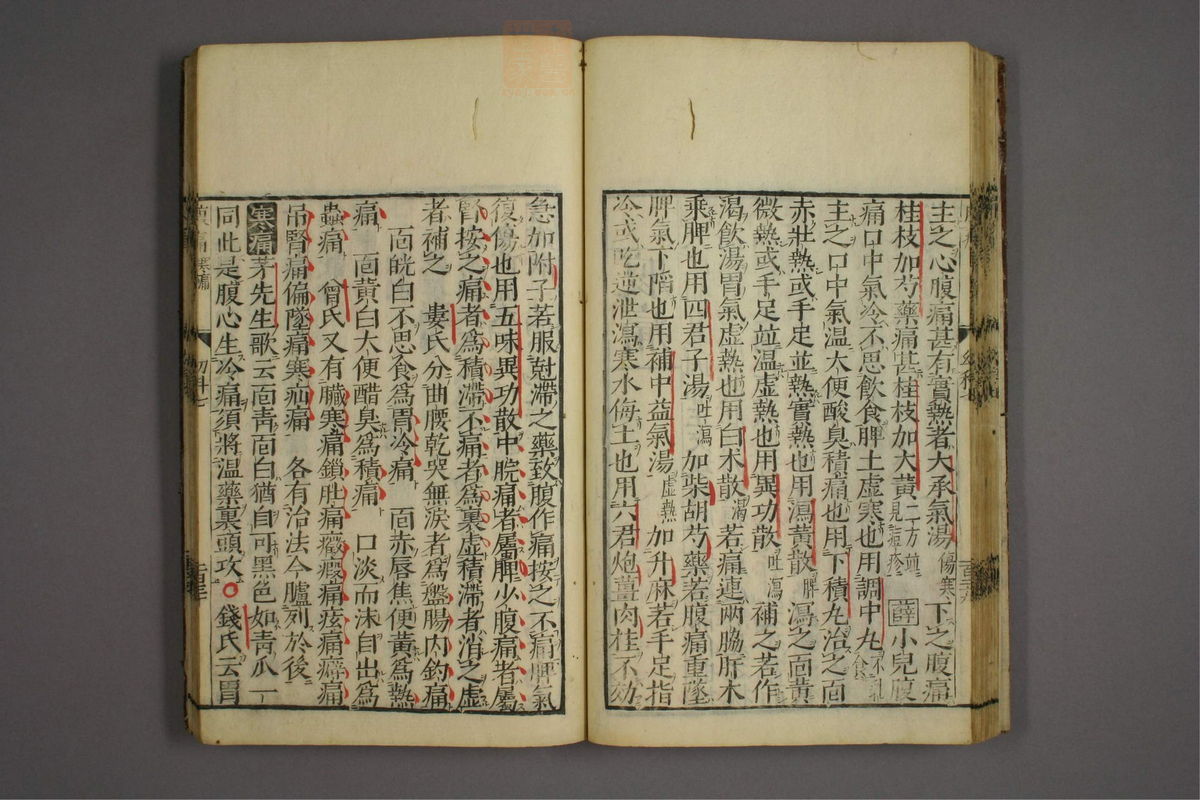 主之心腹痛甚有實熱者大承氣湯傷寒下之腹痛
桂枝加芍藥痛甚桂枝加大黃二方並見痘疹薛小兒腹
痛口中氣冷不思飲食脾土虛寒也用調中丸不乳食
主之口中氣溫大便酸臭積痛也用下積丸治之面
赤壯熱或手足並熱實熱也用瀉黃散脾瀉之面黃
微熱或手足並溫虛熱也用異功散吐瀉補之若作
渴飲湯胃氣虛熱也用白朮散渴若痛連兩脇肝木
乘脾也用四君子湯吐瀉加柴胡芍藥若腹痛重墜
脾氣下陷也用補中益氣湯虛熱加升麻若手足指
冷或吃逆泄瀉寒水侮土也用六君炮薑肉桂不効
急加附子若服尅滯之藥致腹作痛按之不痛脾氣
復傷也用五味異功散中脘痛者屬脾少腹痛者屬
腎按之痛者爲積滯不痛者爲裏虛積滯者消之虛
者補之 婁氏分曲腰乾哭無淚者爲盤腸內釣痛
面㿠白不思食爲胃冷痛 面赤唇焦便黃爲熱
痛 面黃白大便醋臭爲積痛 口淡而沫自出爲
蟲痛 曾氏又有臟寒痛鎖肚痛癥瘕痛痃痛癖痛
吊腎痛偏墜痛寒疝痛 各有治法今臚列於後
寒痛茅先生歌云面靑面白猶自可黑色如靑瓜一
同此是腹心生冷痛須將溫藥裏頭攻○錢氏云胃